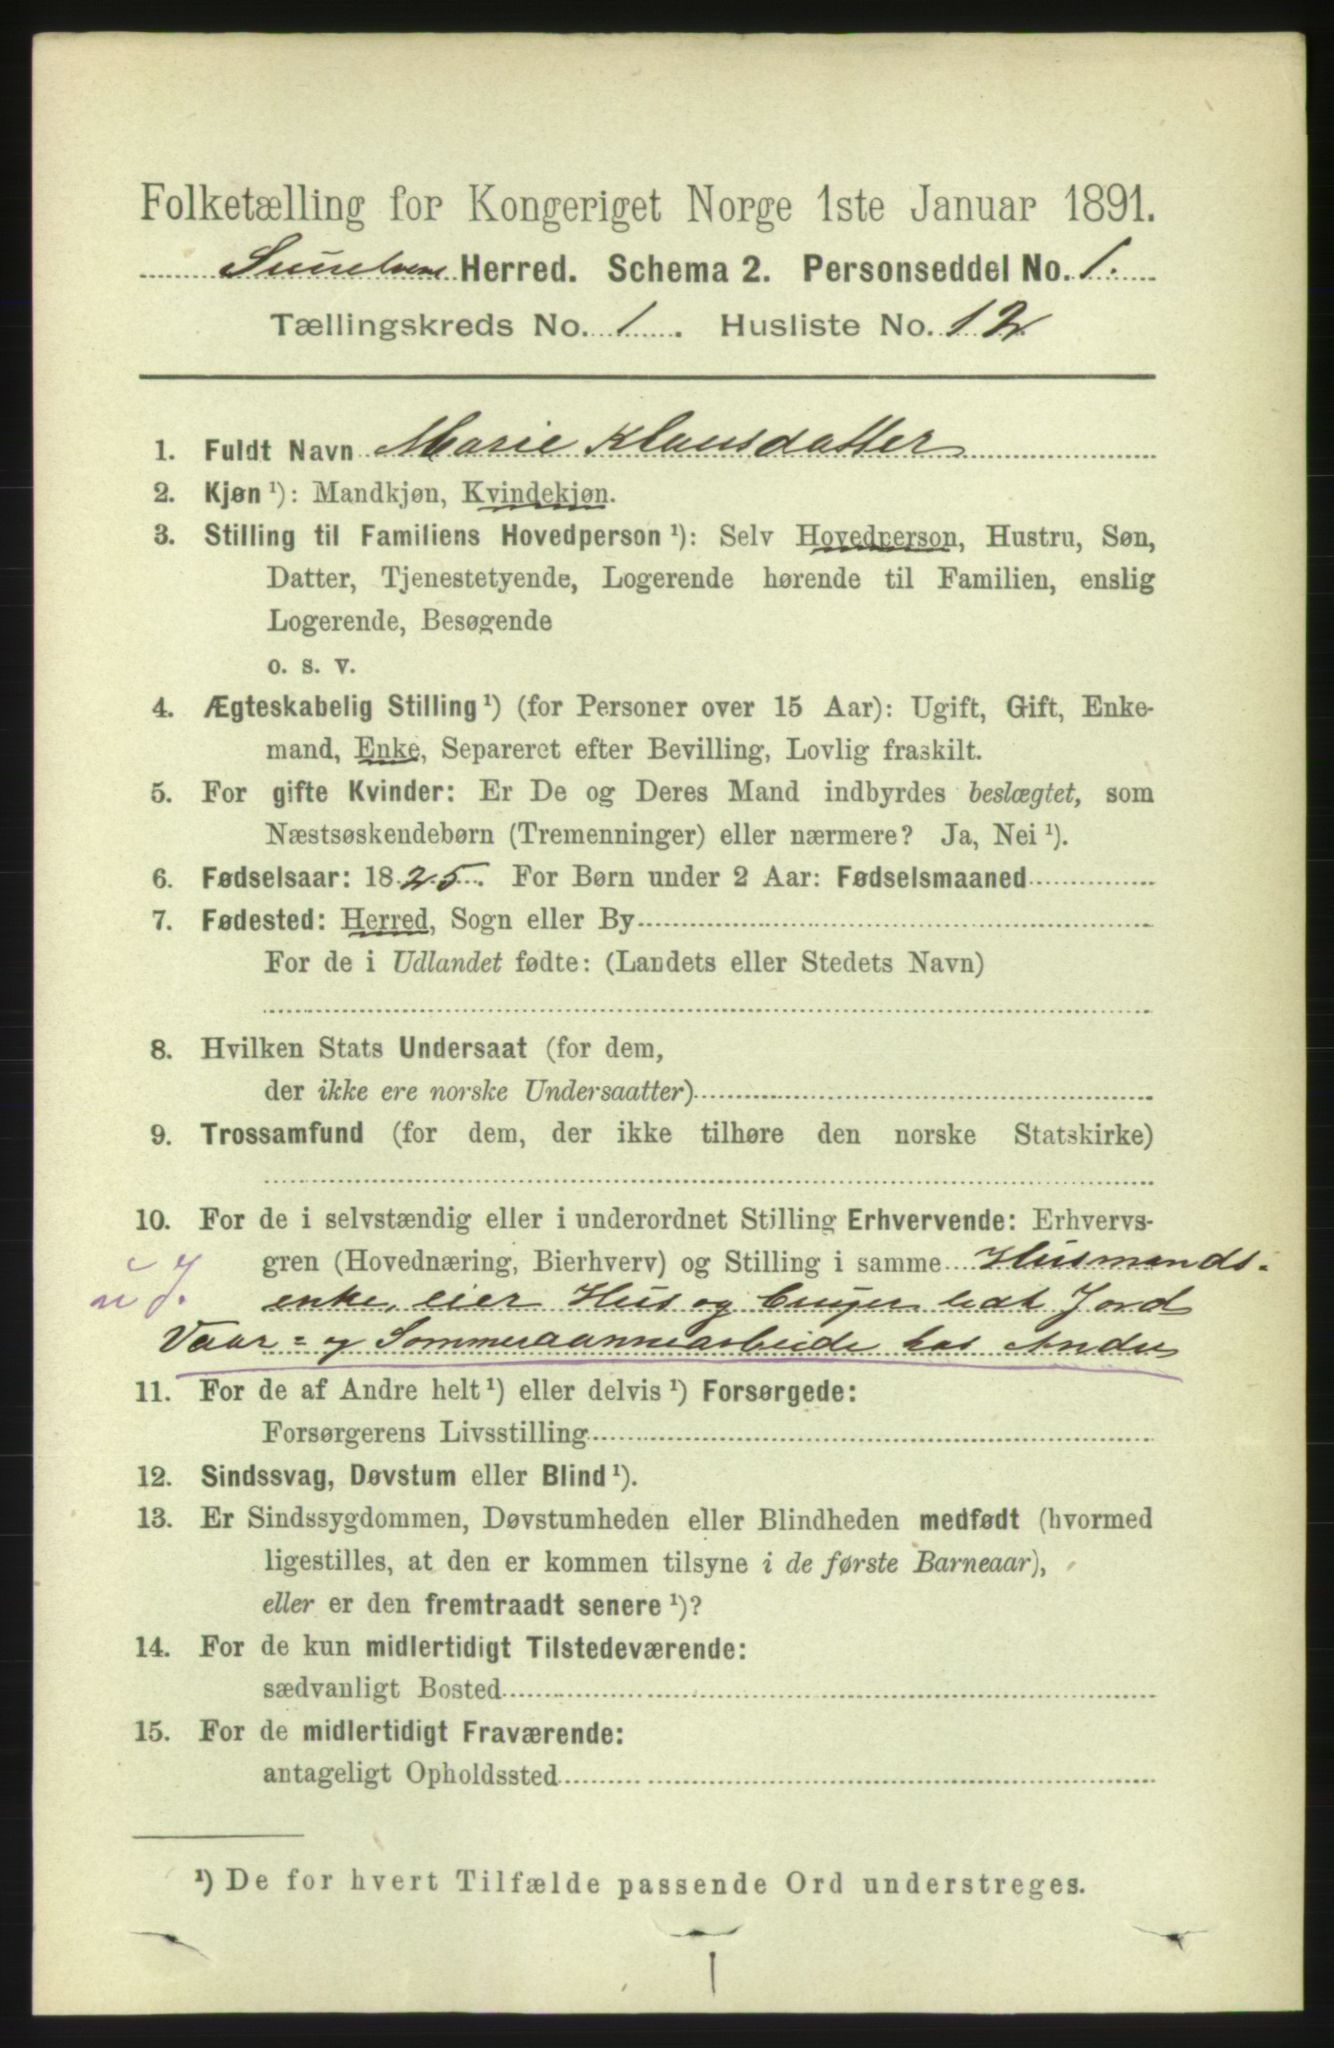 Folketælling for Kongeriget Norge 1ste Januar 1891.
Sunelven Herred. Schema 2. Personseddel No. 1.
Tællingskreds No. 1. Husliste No. 12
1. Fuldt Navn Marie Klausdatter
2. Kjøn ¹): Mandkjøn, Kvindekjøn.
3. Stilling til Familiens Hovedperson ¹): Selv Hovedperson, Hustru, Søn,
Datter, Tjenestetyende, Logerende hørende til Familien, enslig
Logerende, Besøgende
o. s. v.
4. Ægteskabelig Stilling ¹) (for Personer over 15 Aar): Ugift, Gift, Enke-
mand, Enke, Separeret efter Bevilling, Lovlig fraskilt.
5. For gifte Kvinder: Er De og Deres Mand indbyrdes beslægtet, som
Næstsøskendebørn (Tremenninger) eller nærmere? Ja, Nei ¹).
6. Fødselsaar: 1825. For Børn under 2 Aar: Fødselsmaaned
7. Fødested: Herred, Sogn eller By
For de i Udlandet fødte: (Landets eller Stedets Navn)
8. Hvilken Stats Undersaat (for dem,
der ikke ere norske Undersaatter)
9. Trossamfund (for dem, der ikke tilhøre den norske Statskirke)
10. For de i selvstændig eller i underordnet Stilling Erhvervende: Erhvervs-
gren (Hovednæring, Bierhverv) og Stilling i samme Husmands-
enke, eier Hus og bruger lidt Jord
Vaar- og Sommeraannearbeide hos Andre
11. For de af Andre helt ¹) eller delvis ¹) Forsørgede:
Forsørgerens Livsstilling
12. Sindssvag, Døvstum eller Blind ¹).
13. Er Sindssygdommen, Døvstumheden eller Blindheden medfødt (hvormed
ligestilles, at den er kommen tilsyne i de første Barneaar),
eller er den fremtraadt senere ¹)?
14. For de kun midlertidigt Tilstedeværende:
sædvanligt Bosted
15. For de midlertidigt Fraværende:
antageligt Opholdssted
¹) De for hvert Tilfælde passende Ord understreges.